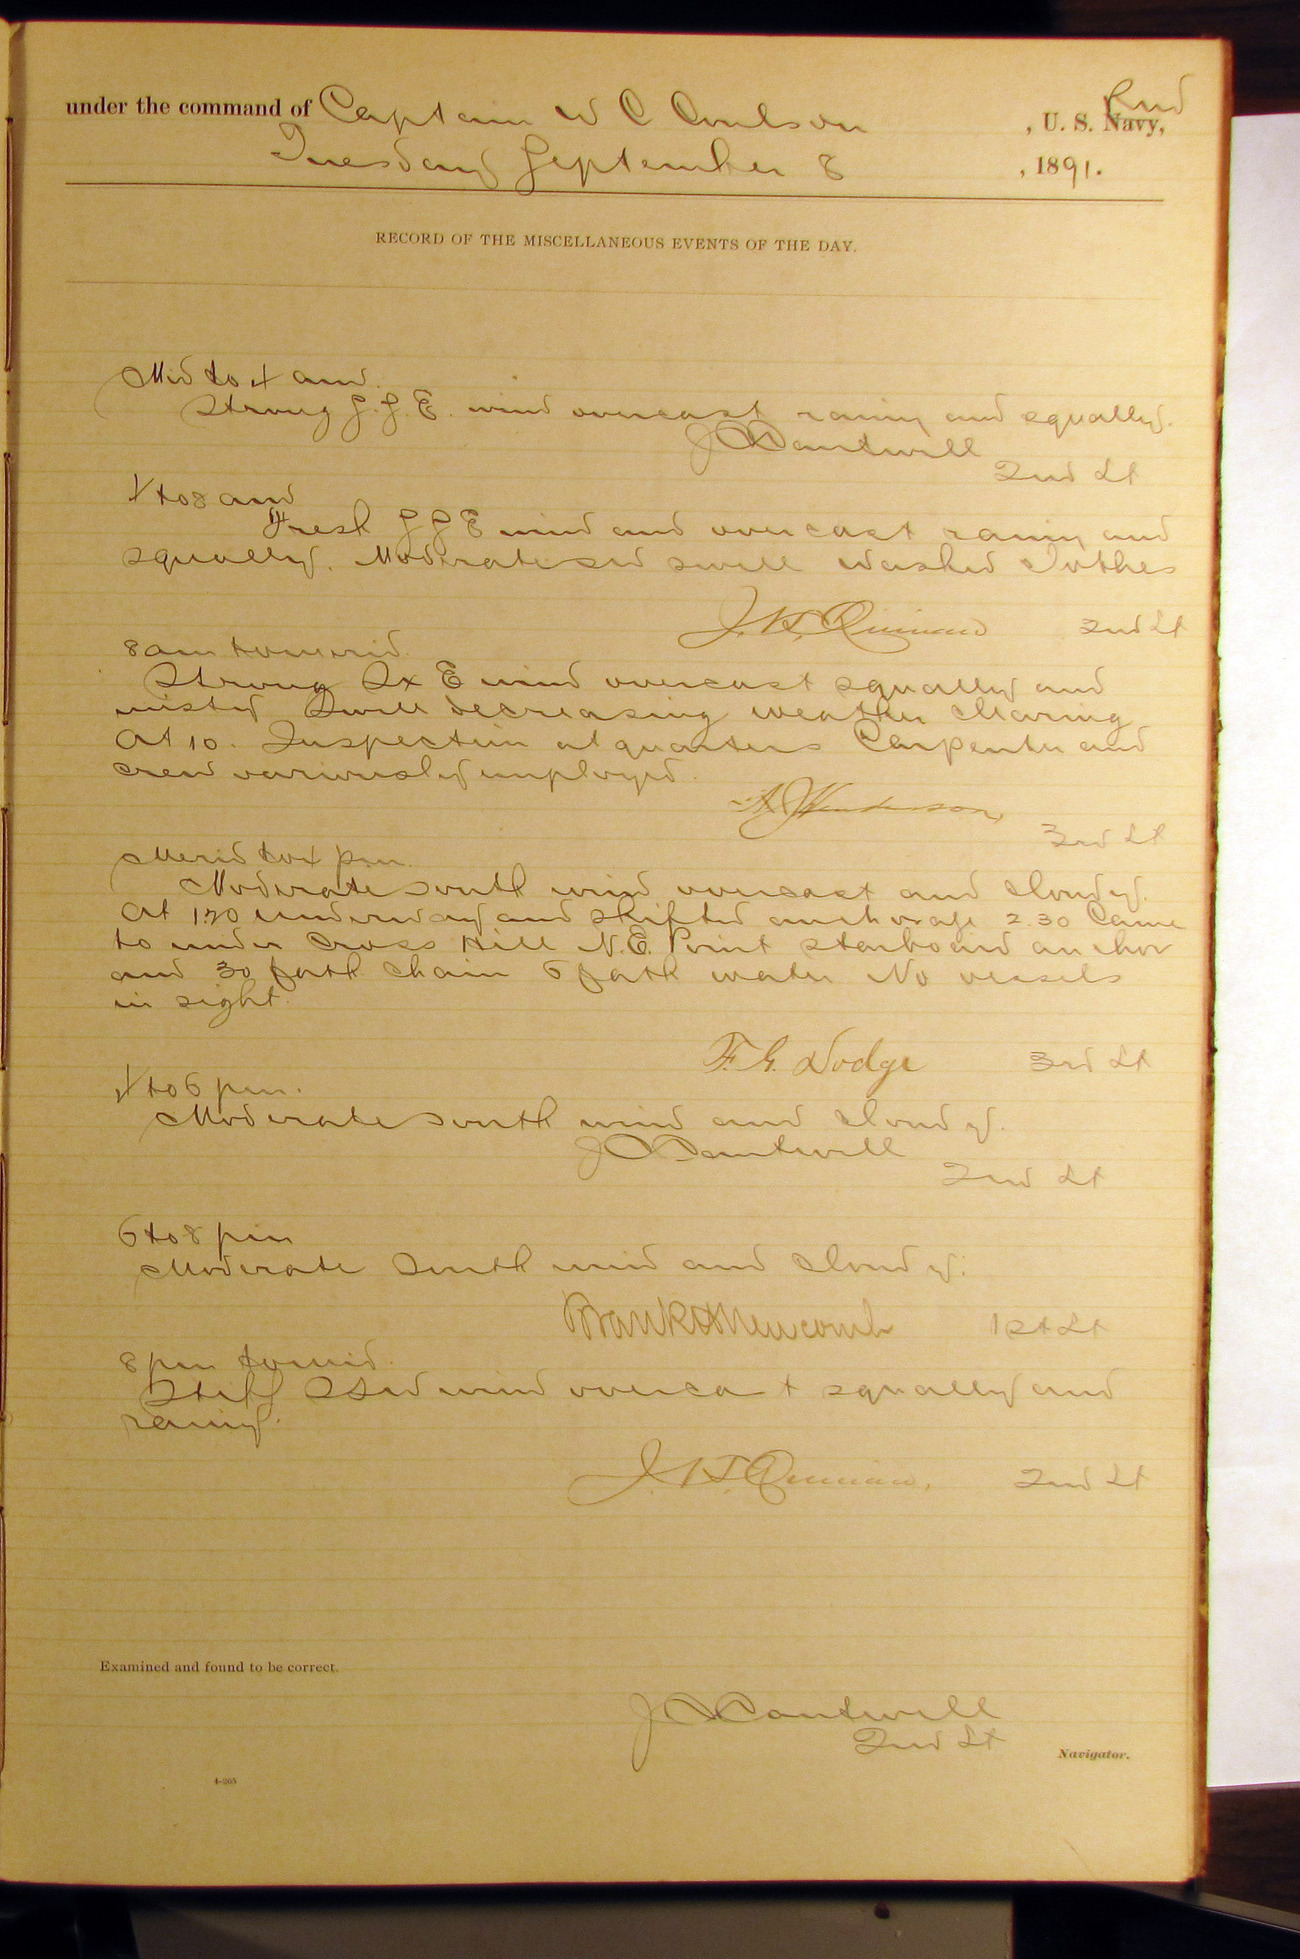 under the command of Captain W C Coulson , U. S. Navy, Rev
Tuesday September 8 , 1891.
RECORD OF THE MISCELLANEOUS EVENTS OF THE DAY.
Mid to 4 am.
Strong S.S.E. wind overcast rainy and squally.
J C Cantwell
2nd Lt
4 to 8 am
Fresh S S E wind and overcast rainy and
squally. Moderate sea swell Washed clothes
J. H. Quinan 2nd Lt
8 am to merid.
Strong S x E wind overcast squally and
misty Swell decreasing weather clearing
At 10. Inspection at quarters Carpenter and
crew variously employed.
A J Henderson,
3rd Lt
Merid to 4 pm.
Moderate south wind overcast and cloudy.
At 1.20 underway and shifted anchorage 2.30 Came
to under Cross Hill N.E. Point starboard anchor
and 30 fath chain 6 fath water No vessels
in sight.
F. G. Dodge 3rd Lt
4 to 6 pm.
Moderate south wind and cloudy.
J C Cantwell
2nd Lt
6 to 8 pm
Moderate South wind and cloudy.
Frank H Newcomb 1st Lt
8 pm to mid.
Stiff SSW wind overcast squally and
rainy.
J. H. Quinan, 2nd Lt
Examined and found to be correct.
J C Cantwell
2nd Lt Navigator.
4-205